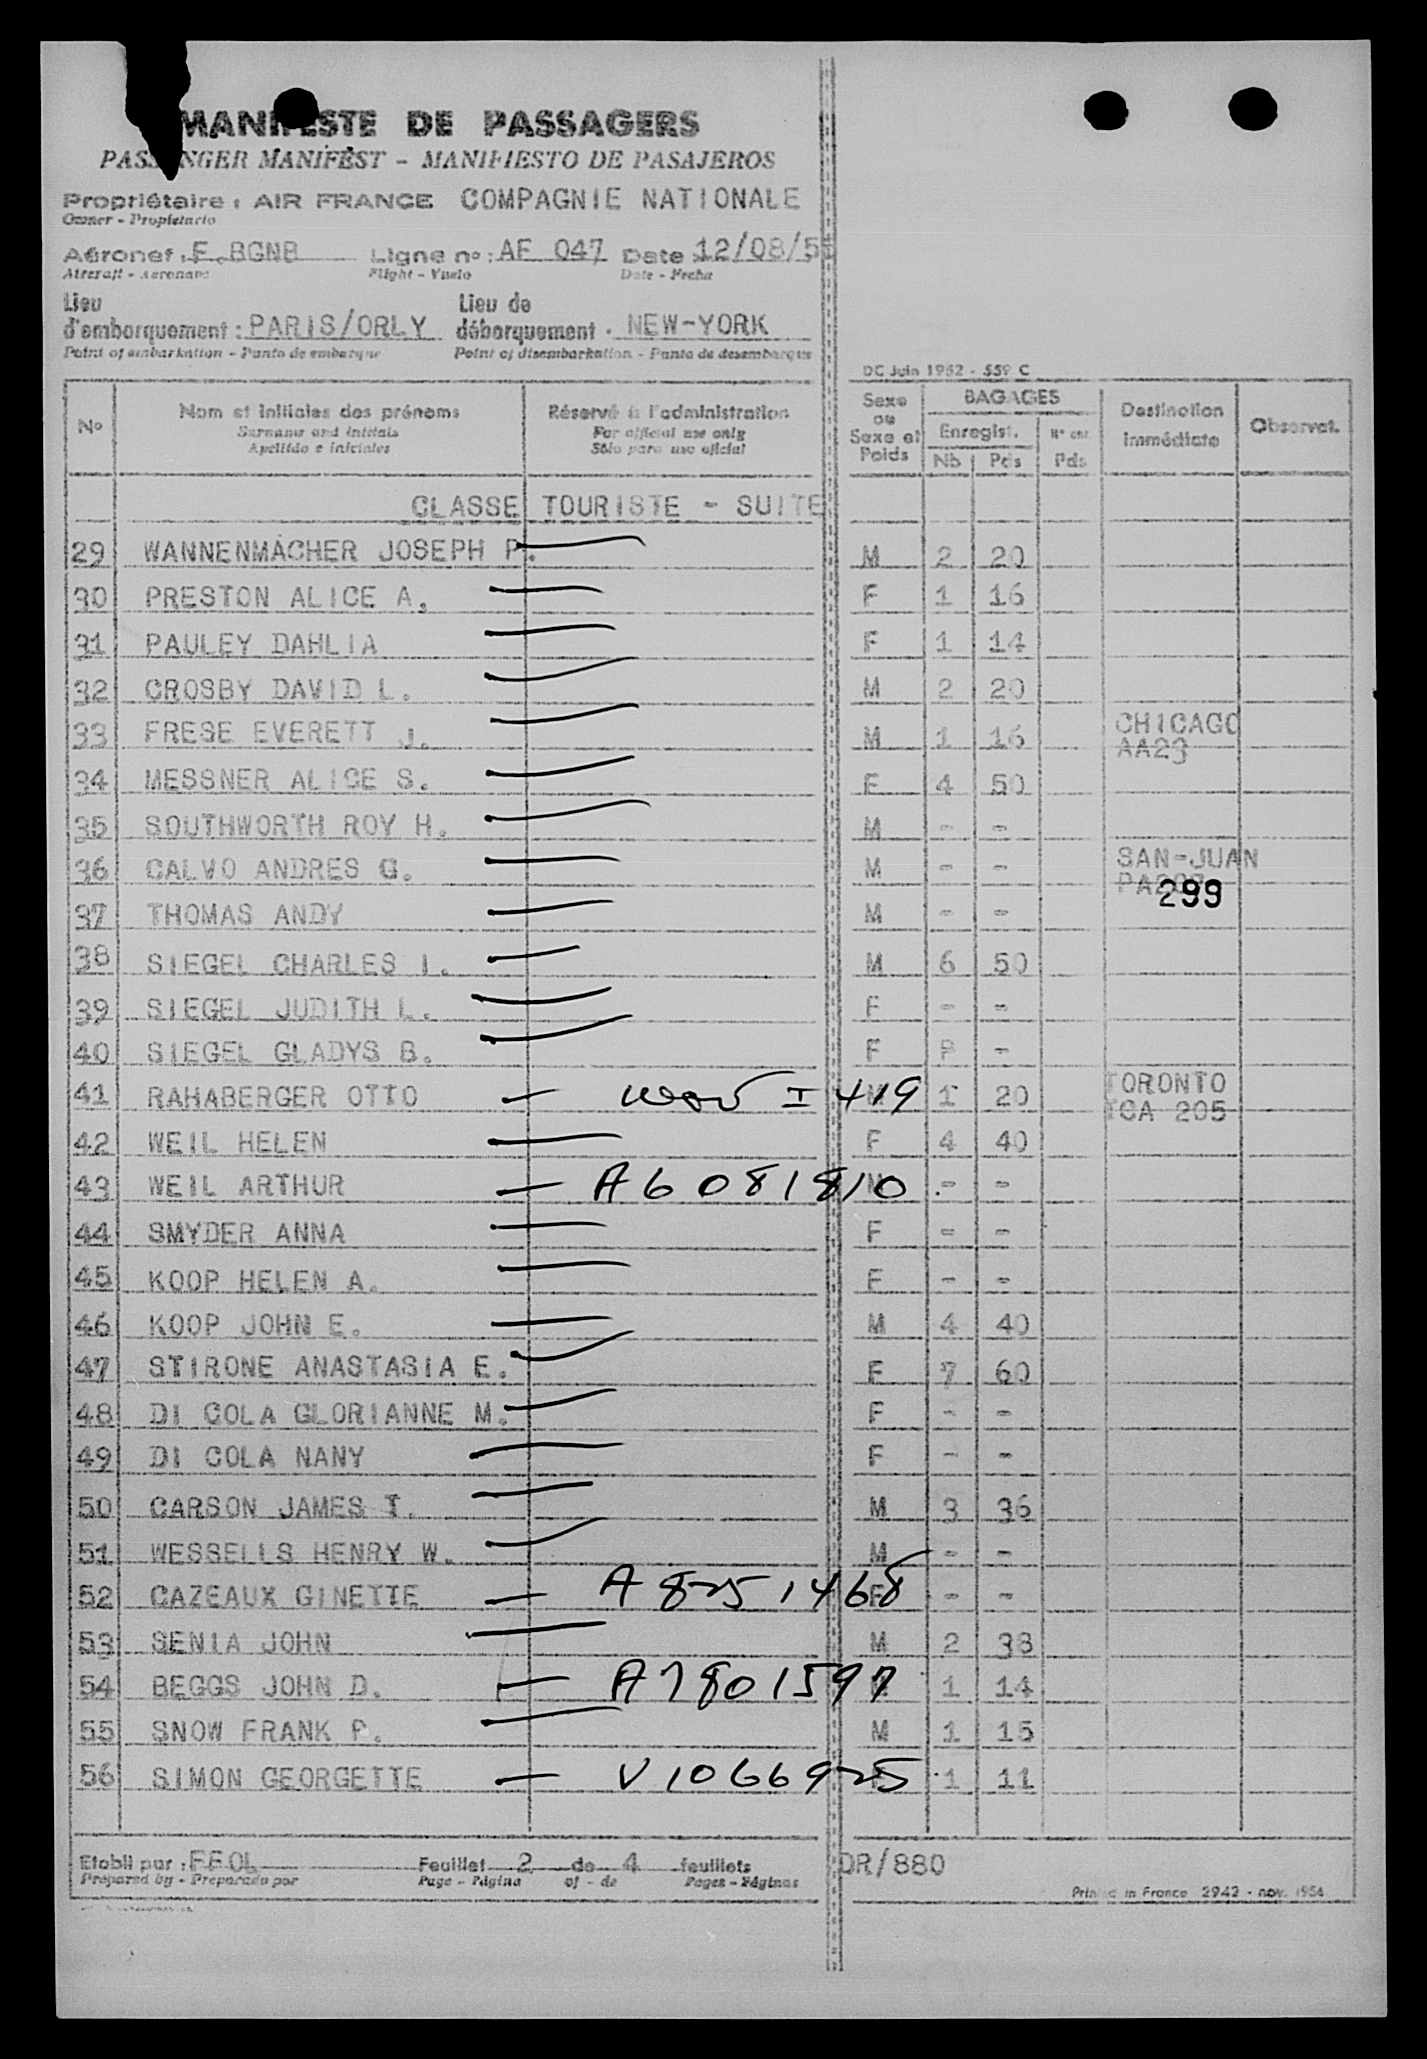 MANIFESTE DE PASSAGERS
PASSENGER MANIFEST - MANIFIESTO DE PASAJEROS
Propriétaire : AIR FRANCE COMPAGNIE NATIONALE
Owner - Propietario
Aéronef : F.BGNB Ligne nº : AF 047 Date 12/08/55
Aircraft - Aeronave Flight - Vuelo Date - Fecha
Lieu d'embarquement : PARIS/ORLY Lieu de débarquement : NEW-YORK
Point of embarkation - Punto de embarque Point of disembarkation - Punto de desembarque
DC Juin 1952 - 559 C
Nº Nom et initiales des prénoms Réservé à l'administration Sexe ou Sexe et Poids BAGAGES Destination immédiate Observat.
Surname and initials For official use only Enregist. Nº enr.
Apellido e iniciales Sólo para uso oficial Nb Pds Pds
CLASSE TOURISTE - SUITE
29 WANNENMACHER JOSEPH P. M 2 20
30 PRESTON ALICE A. F 1 16
31 PAULEY DAHLIA F 1 14
32 CROSBY DAVID L. M 2 20
33 FRESE EVERETT J. M 1 16 CHICAGO AA23
34 MESSNER ALICE S. F 4 50
35 SOUTHWORTH ROY H. M - -
36 CALVO ANDRES G. M - - SAN-JUAN
299
37 THOMAS ANDY M - -
38 SIEGEL CHARLES I. M 6 50
39 SIEGEL JUDITH L. F - -
40 SIEGEL GLADYS B. F - -
41 RAHABERGER OTTO — I 419 M 1 20 TORONTO TCA 205
42 WEIL HELEN F 4 40
43 WEIL ARTHUR — A6081810 M - -
44 SMYDER ANNA F - -
45 KOOP HELEN A. F - -
46 KOOP JOHN E. M 4 40
47 STIRONE ANASTASIA E. F 7 60
48 DI COLA GLORIANNE M. F - -
49 DI COLA NANY F - -
50 CARSON JAMES T. M 3 36
51 WESSELLS HENRY W. M - -
52 CAZEAUX GINETTE — A8251468 F - -
53 SENIA JOHN M 2 38
54 BEGGS JOHN D. — A7801597 1 14
55 SNOW FRANK P. M 1 15
56 SIMON GEORGETTE — V1066925 1 11
Etabli par : FFOL Feuillet 2 de 4 feuillets OR/880
Prepared by - Preparado por Page - Página of - de Pages - Páginas
Printed in France 2942 - nov. 1954